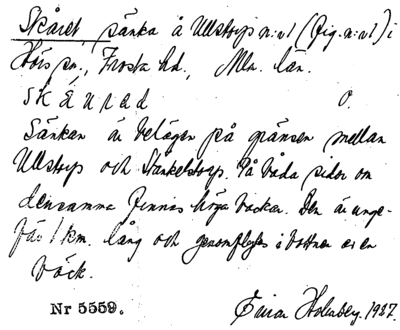 Skåret sänka å Ullstorps n:o 1 (fig. n:o 1) i
Hörs sn., Frosta hd., Mlm. län.
SKÉnrad O.
Sänkan är belägen på gränsen mellan
Ullstorp och Stänkelstorp. På båda sidor om
densamma finnas höga backar. Den är unge-
fär 1 km. lång och genomflytes i bottnen av en
bäck.
Nr 5559. Einar Holmberg. 1927.